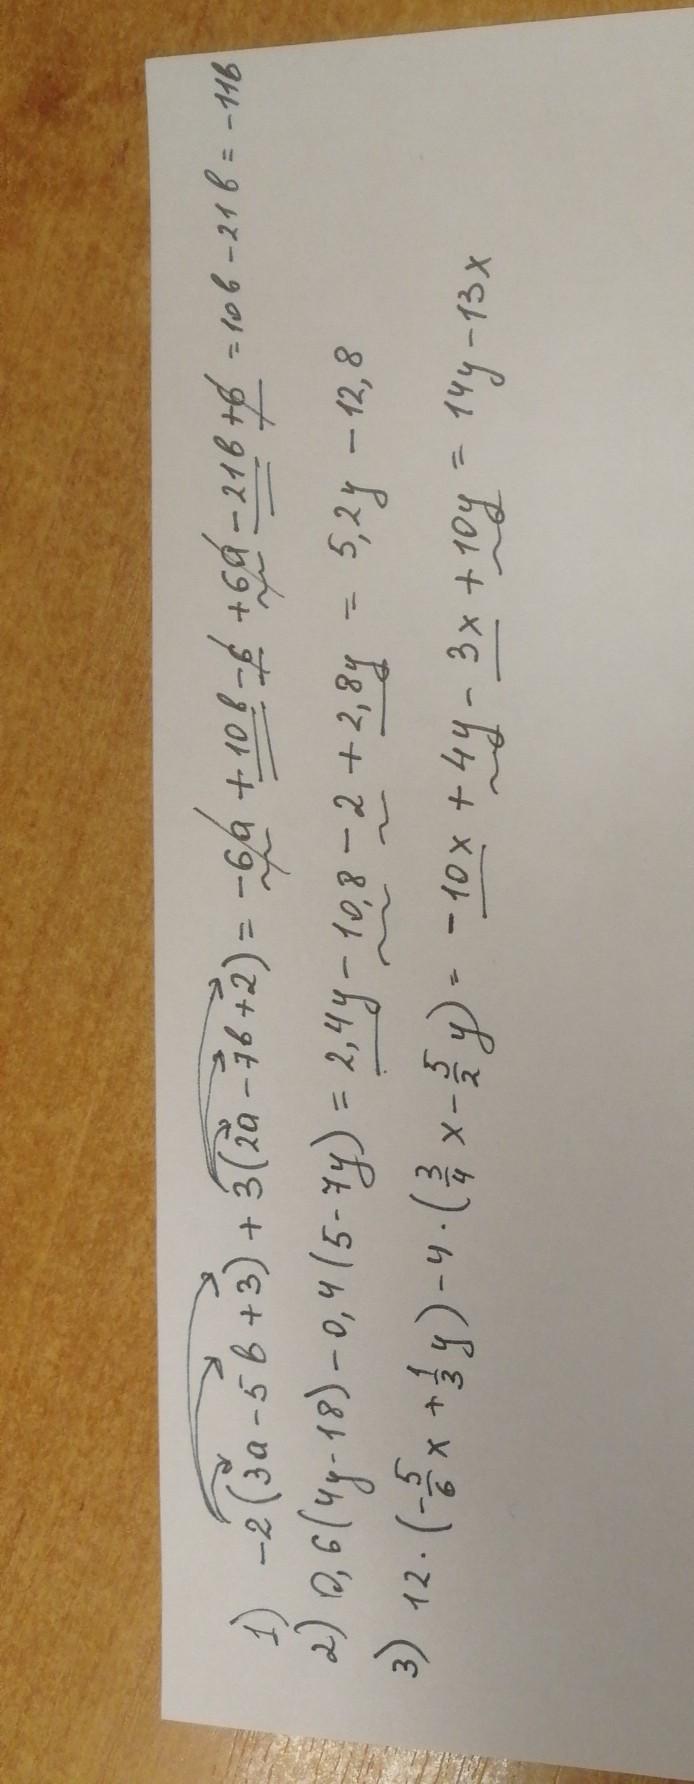 1) -2(3a-5b+3)+3(2a-7b+2)=-6a+10b-6+6a-21b+6=10b-21b=-11b
2) 0,6(4y-18)-0,4(5-7y)=2,4y-10,8-2+2,8y=5,2y-12,8
3) 12·(-5/6x+1/3y)-4·(3/4x-5/2y)=-10x+4y-3x+10y=14y-13x